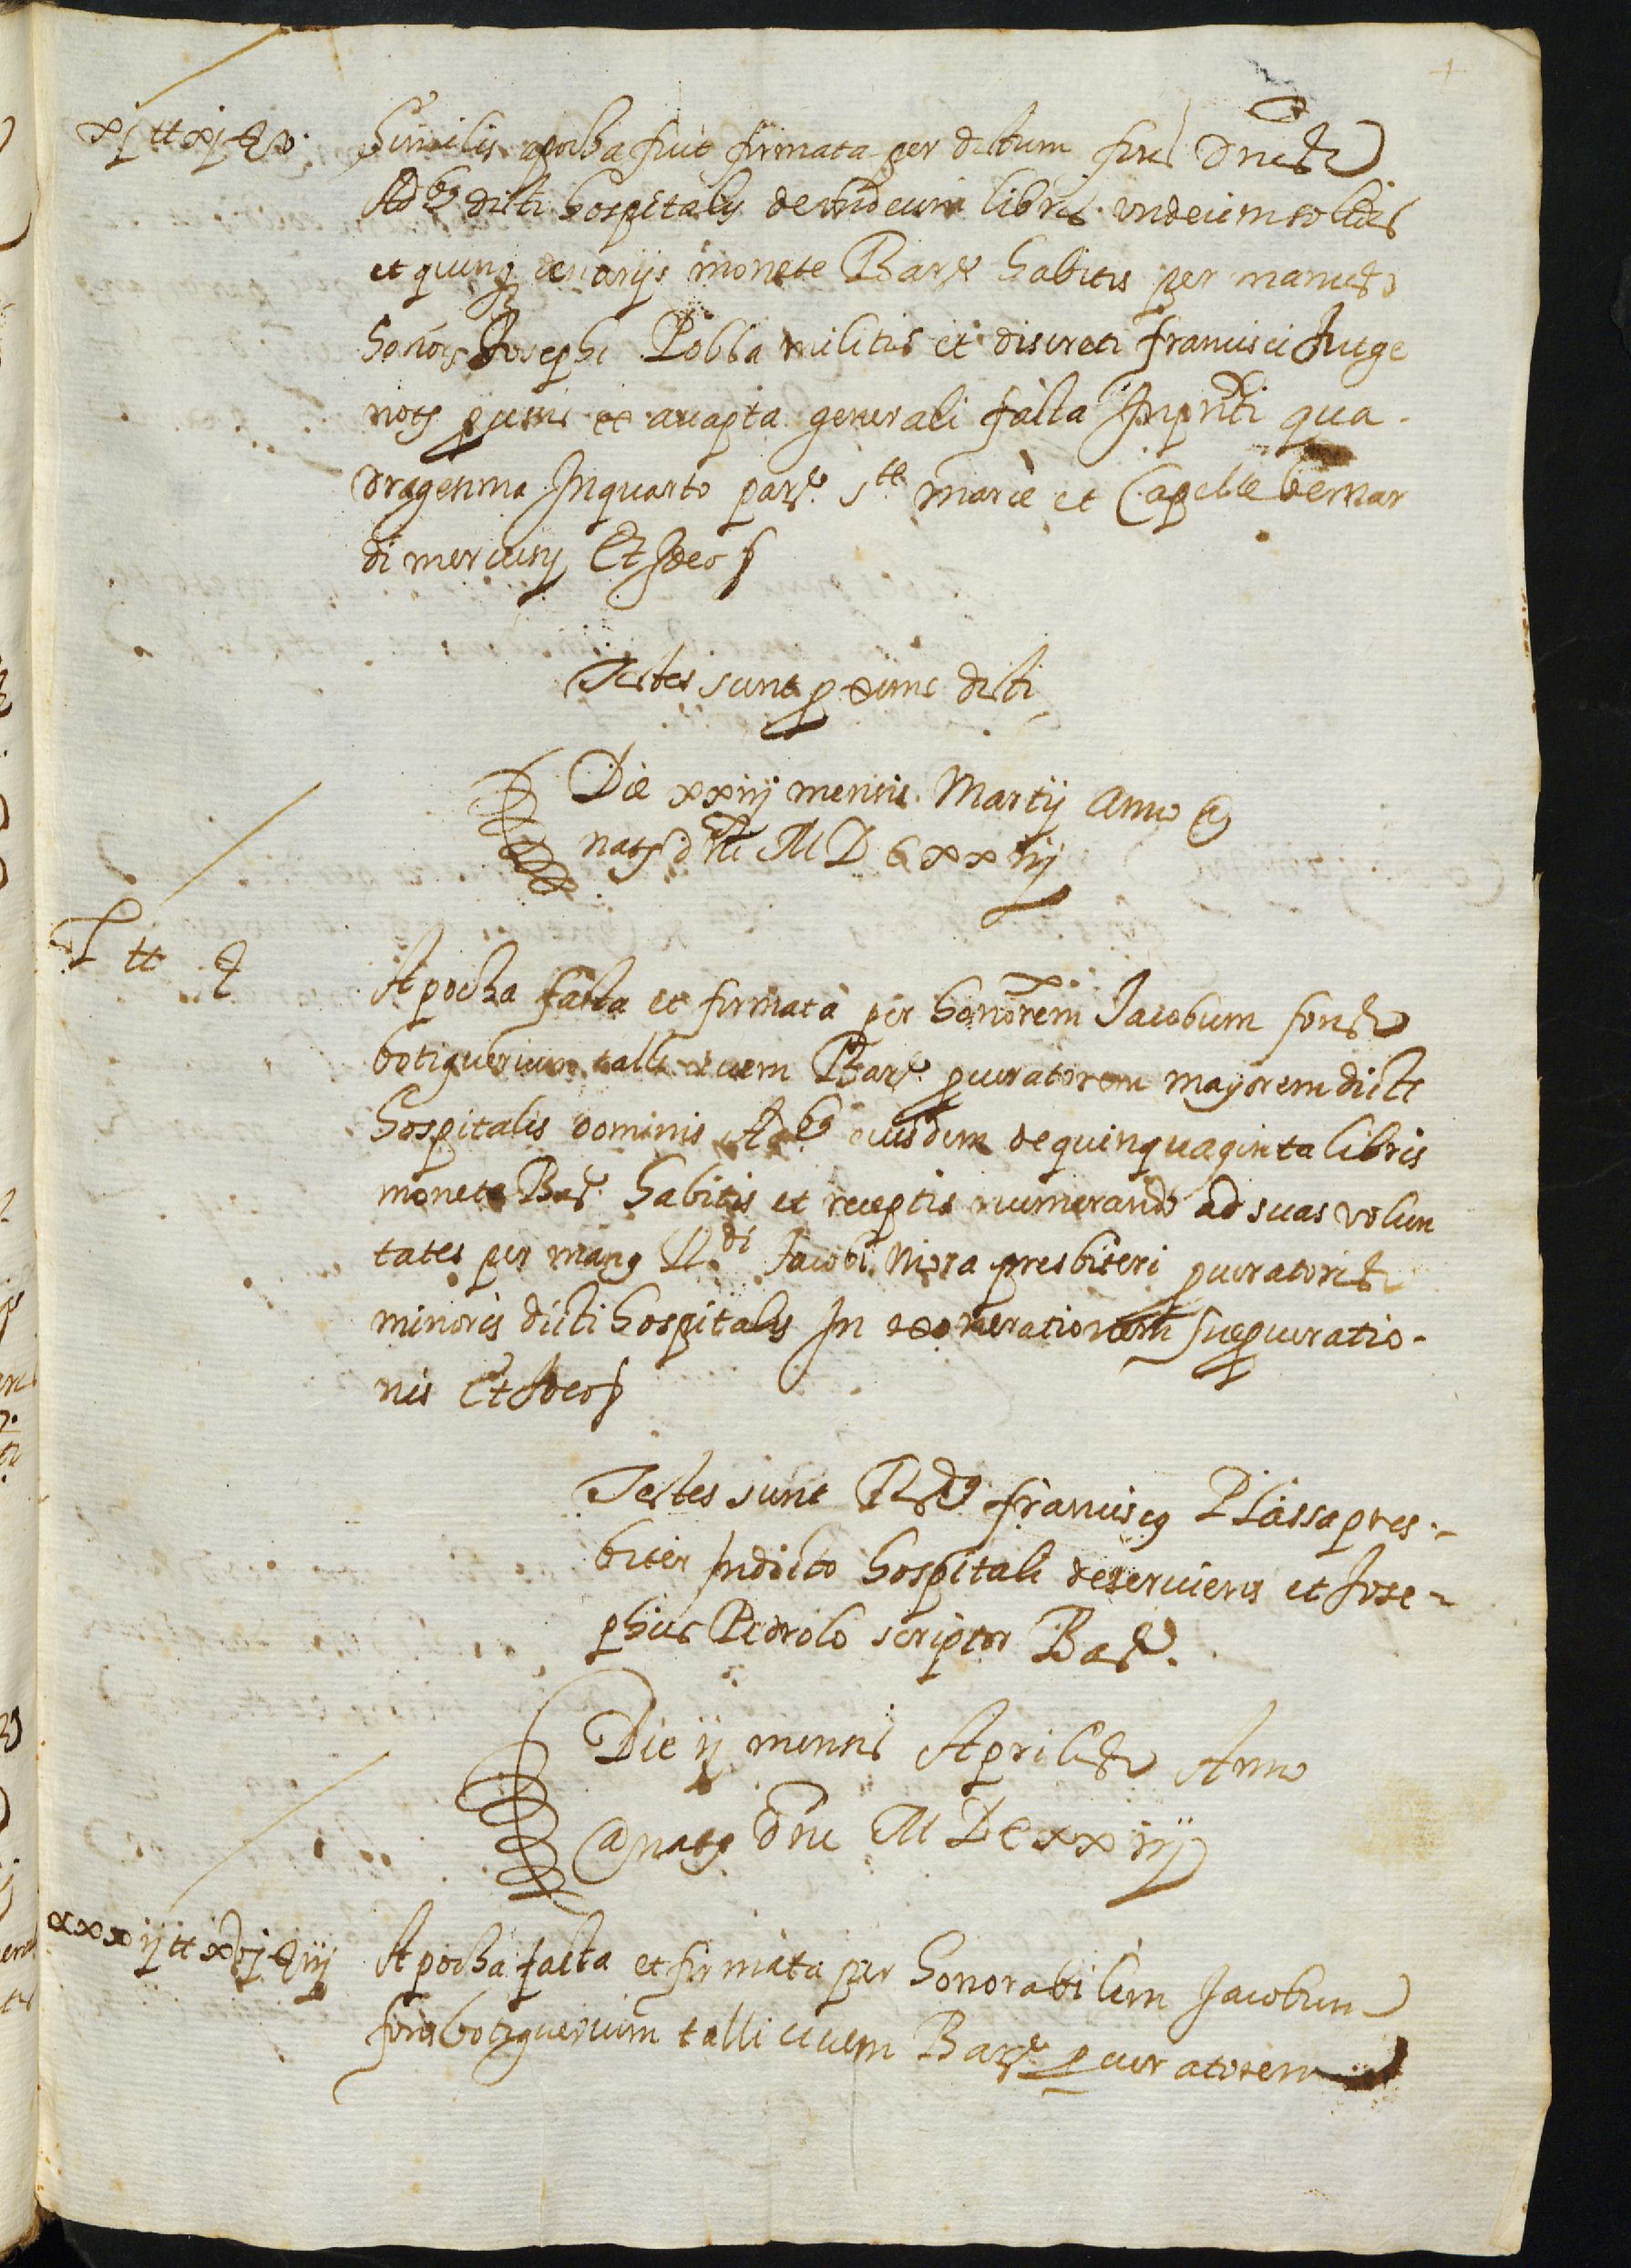 xj tt xj ₰ v.
Similis apocha fuit firmata per dictum fons dnis
Adbus dicti hospitalis de undecim libris undecim solidis
et quinq denarijs monete Barᵉ habitis per manus
honor Josephi Pobla militis et discreti francisci Juge
notj ex acapta generali facta In pnti qua-
dragesima In quarto parᵉ Stᵉ marie et Capelle bernar
di mercurij Et Ideo
Testes sunt proxime dicti
Die xxiij mensis Martij Anno a
natᵉ dni MDCxxiij
L tt ₰
Apocha facta et firmata per honorem Jacobum fons
botiguerium talli civem Barᵉ procuratorem mayorem dicti
hospitalis dominis Adbus eiusdem de quinquaginta libris
monete Barᵉ habitis et receptis numerando ad suas volun
tates per manꝰ R.di Jacobi Mora presbiteri procuratoris
minoris dicti hospitalis In exonerationem sue procuratio-
nis Et Ideo
Testes sunt Rdus franciscꝰ Plassa pres-
biter In dicto hospitali deserviens et Jose-
phus Pedrolo scriptor Barᵉ.
Die ij mensis Aprilis Anno
a natᵉ dni MDCxxiij
xxxij tt xvj ₰ iij
Apocha facta et firmata per honorabilem Jacobum
fons botiguerium talli civem Barᵉ procuratorem